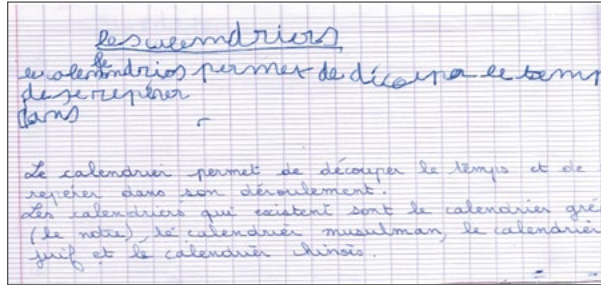 Les calemdriers
le
le calemdrios permet de décopa le temp
de se repérer
dans
Le calendrier permet de découper le temps et de
repérer dans son déroulement.
Les calendriers qui existent sont le calendrier gré
(le notre), le calendrier musulman, le calendrier
juif et le calendrier chinois.